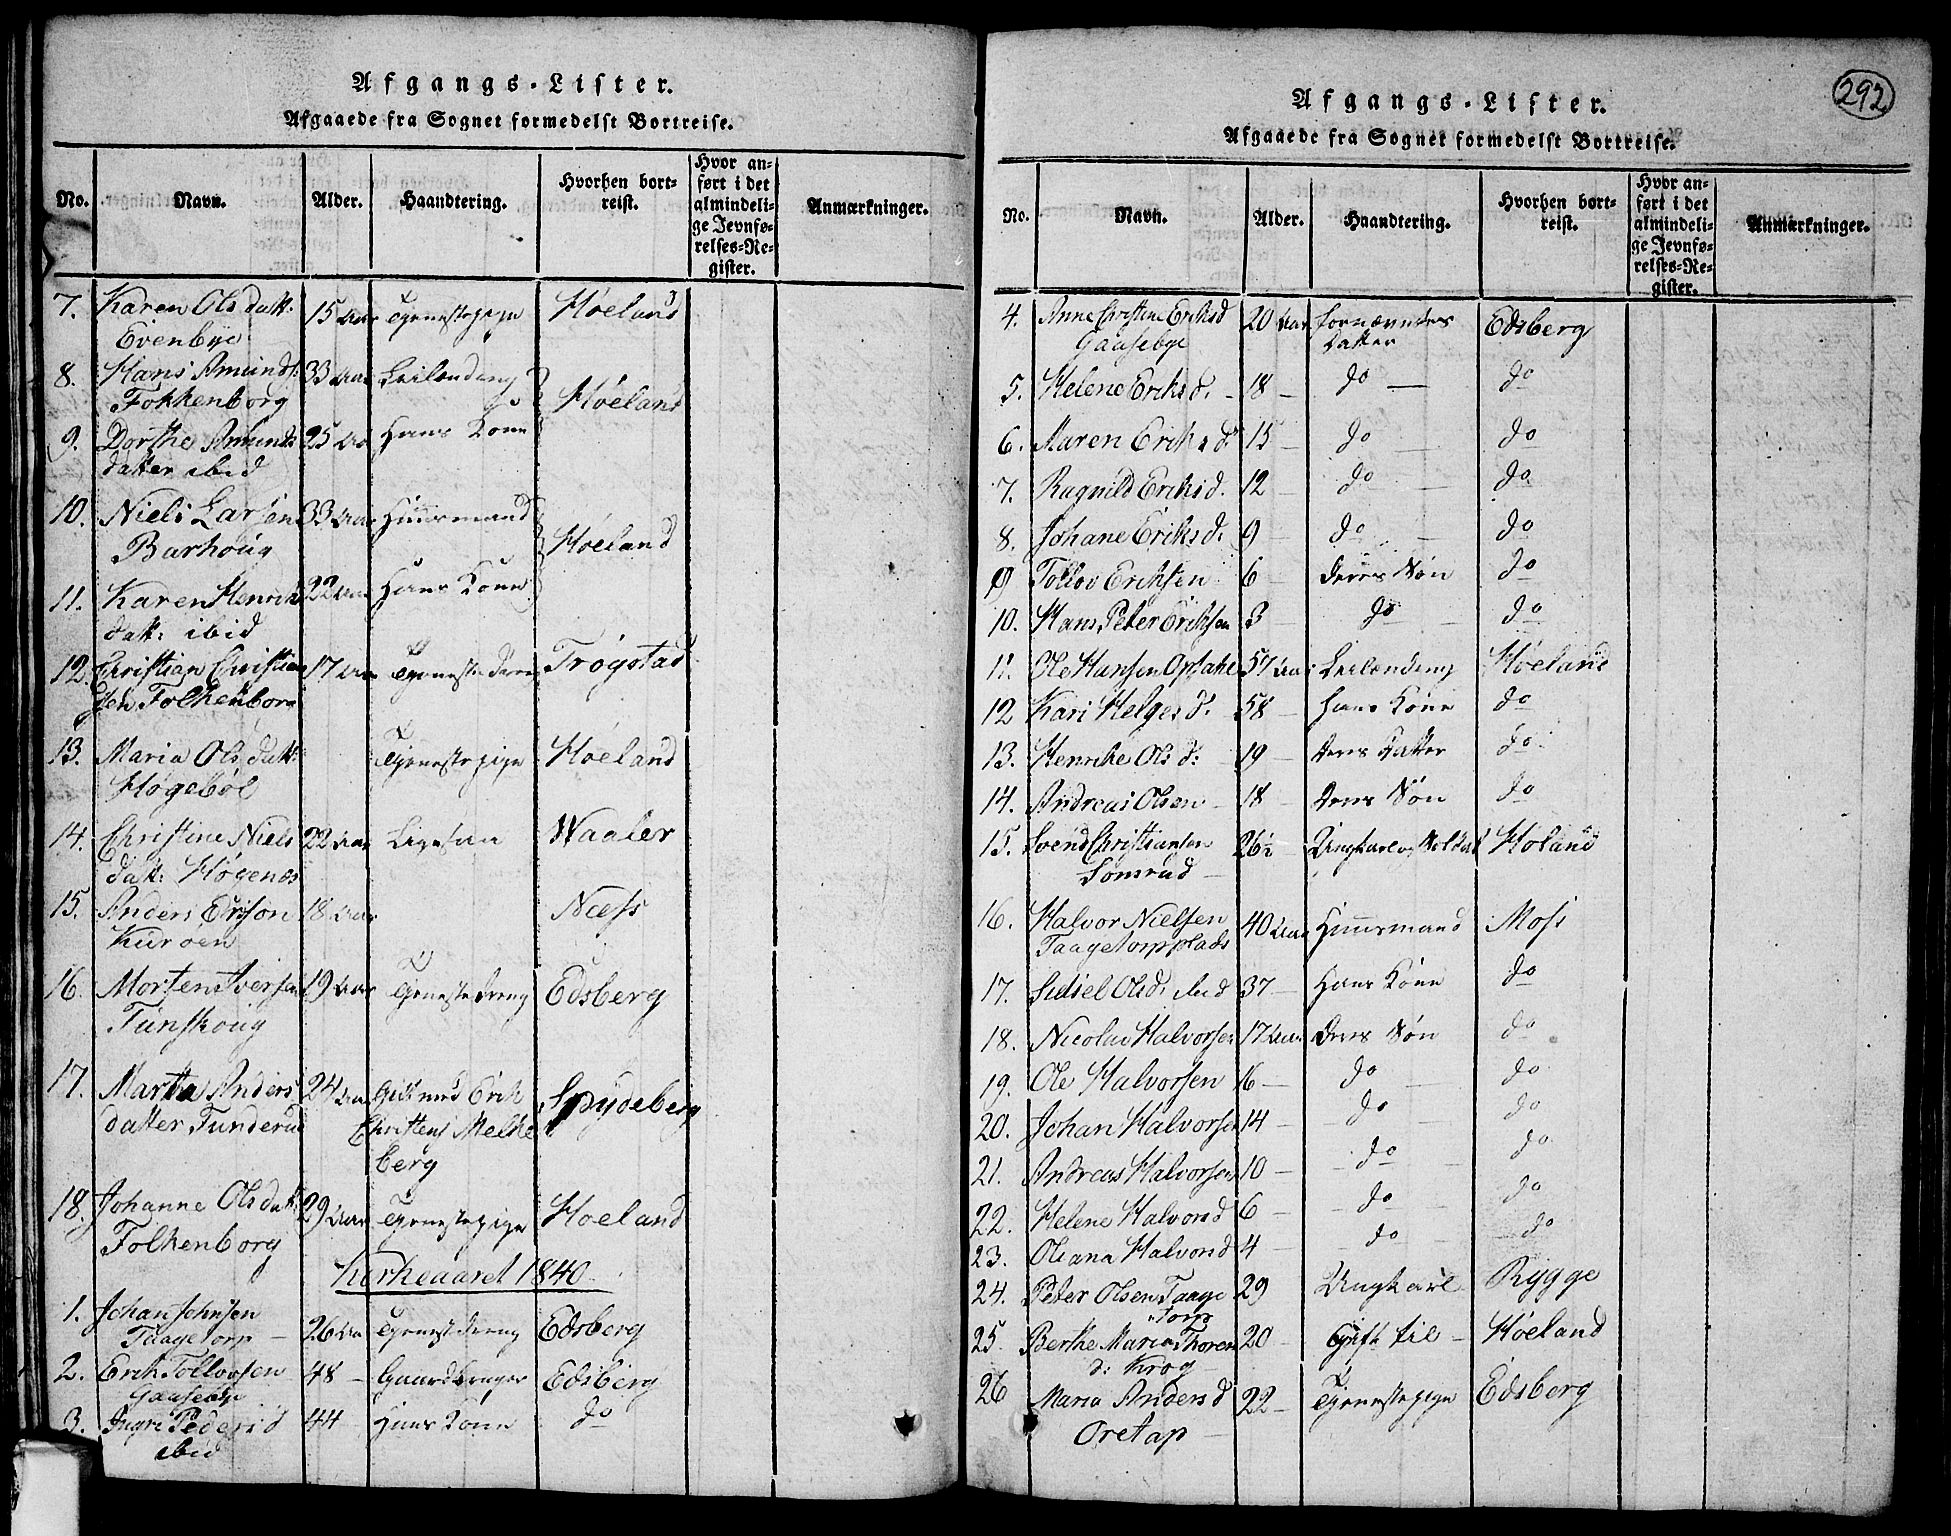 Afgangs-Lister.
Afgaaede fra Sognet formedelst Bortreise.
No. Navn. Alder. Haandtering. Hvorhen bortreist. Hvor anført i det almindelige Jevnførelses-Register. Anmærkninger.
7. Karen Olsdatt: 15 Aar Tjenestepige Høeland
Evenbye
8. Hans Amunds: 33 Aar Leilænding
Fokkenborg Høeland
9. Dorthe Amunds 25 Aar Hans Kone
datter ibid
10. Niels Larsen 33 Aar Huusmand
Barhoug Høeland
11. Karen Henriks 22 Aar Hans Kone
datt: ibid
12. Christian Christian 17 Aar Tjenestedreng Trøgstad
sen Folkenborg
13. Maria Olsdatt: Tjenestepige Høeland
Høgebøl
14. Christine Niels 22 Aar Ligesaa Waaler
datt: Høgenæs
15. Anders Erison 18 Aar Næss
Kurøen
16. Morten Iversen 19 Aar Tjenestedreng Edsberg
Tunskoug
17. Martta Anders 24 Aar Gift med Erik Spydeberg
datter Tunderud Christens Melhe
berg
18. Johanne Olsdatt: 29 Aar Tjenestepige Høeland
Folkenborg
Kirkeaaret 1840.
1. Johan Johnsen
Taagetorp 26 Aar Tjenestdreng Edsberg
2. Erik Tollovsen 48 Gaardbruger Edsberg
Gaasebye
3. Ingri Pedersd 44 Hans Kone do
ibid
292
Afgangs-Lister.
Afgaaede fra Sognet formedelst Bortreise.
No. Navn. Alder. Haandtering. Hvorhen bortreist. Hvor anført i det almindelige Jevnførelses-Register. Anmærkninger.
4. Anne Christine Eriksd 20 Aar fornævntes Edsberg
Gaasebye Datter
5. Helene Eriksd. 18 do do
6. Maren Eriksd 15 do do
7. Ragnild Eriksd. 12 do do
8. Johane Eriksd. 9 do do
9 Tollov Eriksen 6 deres Søn do
10. Hans Peter Eriksen 3 do do
11. Ole Hansen Opsahl 57 Aar Leilænding Høeland
12 Kari Helgesd. 58 Hans Kone do
13. Henrike Olsd: 19 deres Datter do
14. Andreas Olsen 18 deres Søn do
15. Svend Christiansen 26½ Ungkarl og Soldat Høland
Sonsrud
16. Halvor Nielsen 40 Aar Huusmand Moss
Taagetorpplads
17. Sidsel Olsd. ibid 37 Hans Kone do
18. Nicolai Halvorsen 17 Aar deres Søn do
19. Ole Halvorsen 16 do do
20. Johan Halvorsen 14 do do
21. Andreas Halvorsen 10 do do
22. Helene Halvorsd 6 do do
23. Oleana Halvorsd 4 do do
24. Peter Olsen Taage 29 Ungkarl Rygge
Torp
25. Berthe Maria Thores 20 Gift til Høeland
d: Krog
26 Maria Andersd 22 Tjenestepige Edsberg
Oretap